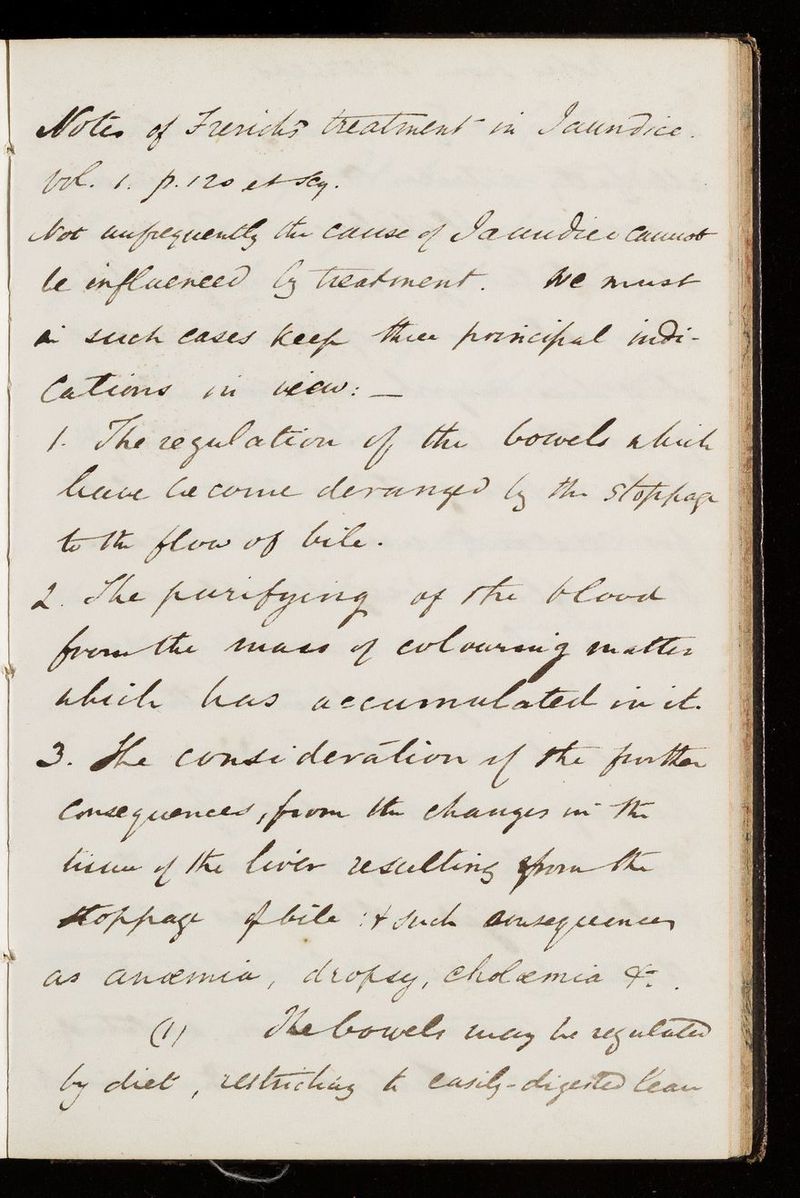 Notes of Frerichs treatment in Jaundice.
Vol. 1. p. 120 et seq.
Not unfrequently the cause of Jaundice cannot
be influenced by treatment. We must
in such cases keep three principal indi-
cations in view: —
1. The regulation of the bowels which
have become deranged by the stoppage
to the flow of bile.
2. The purifying of the blood
from the mass of colouring matter
which has accumulated in it.
3. The consideration of the further
consequences, from the changes in the
tissue of the liver resulting from the
stoppage of bile: & such consequences
as anæmia, dropsy, cholæmia &c.
(1) The bowels may be regulated
by diet, restricting to easily-digested lean